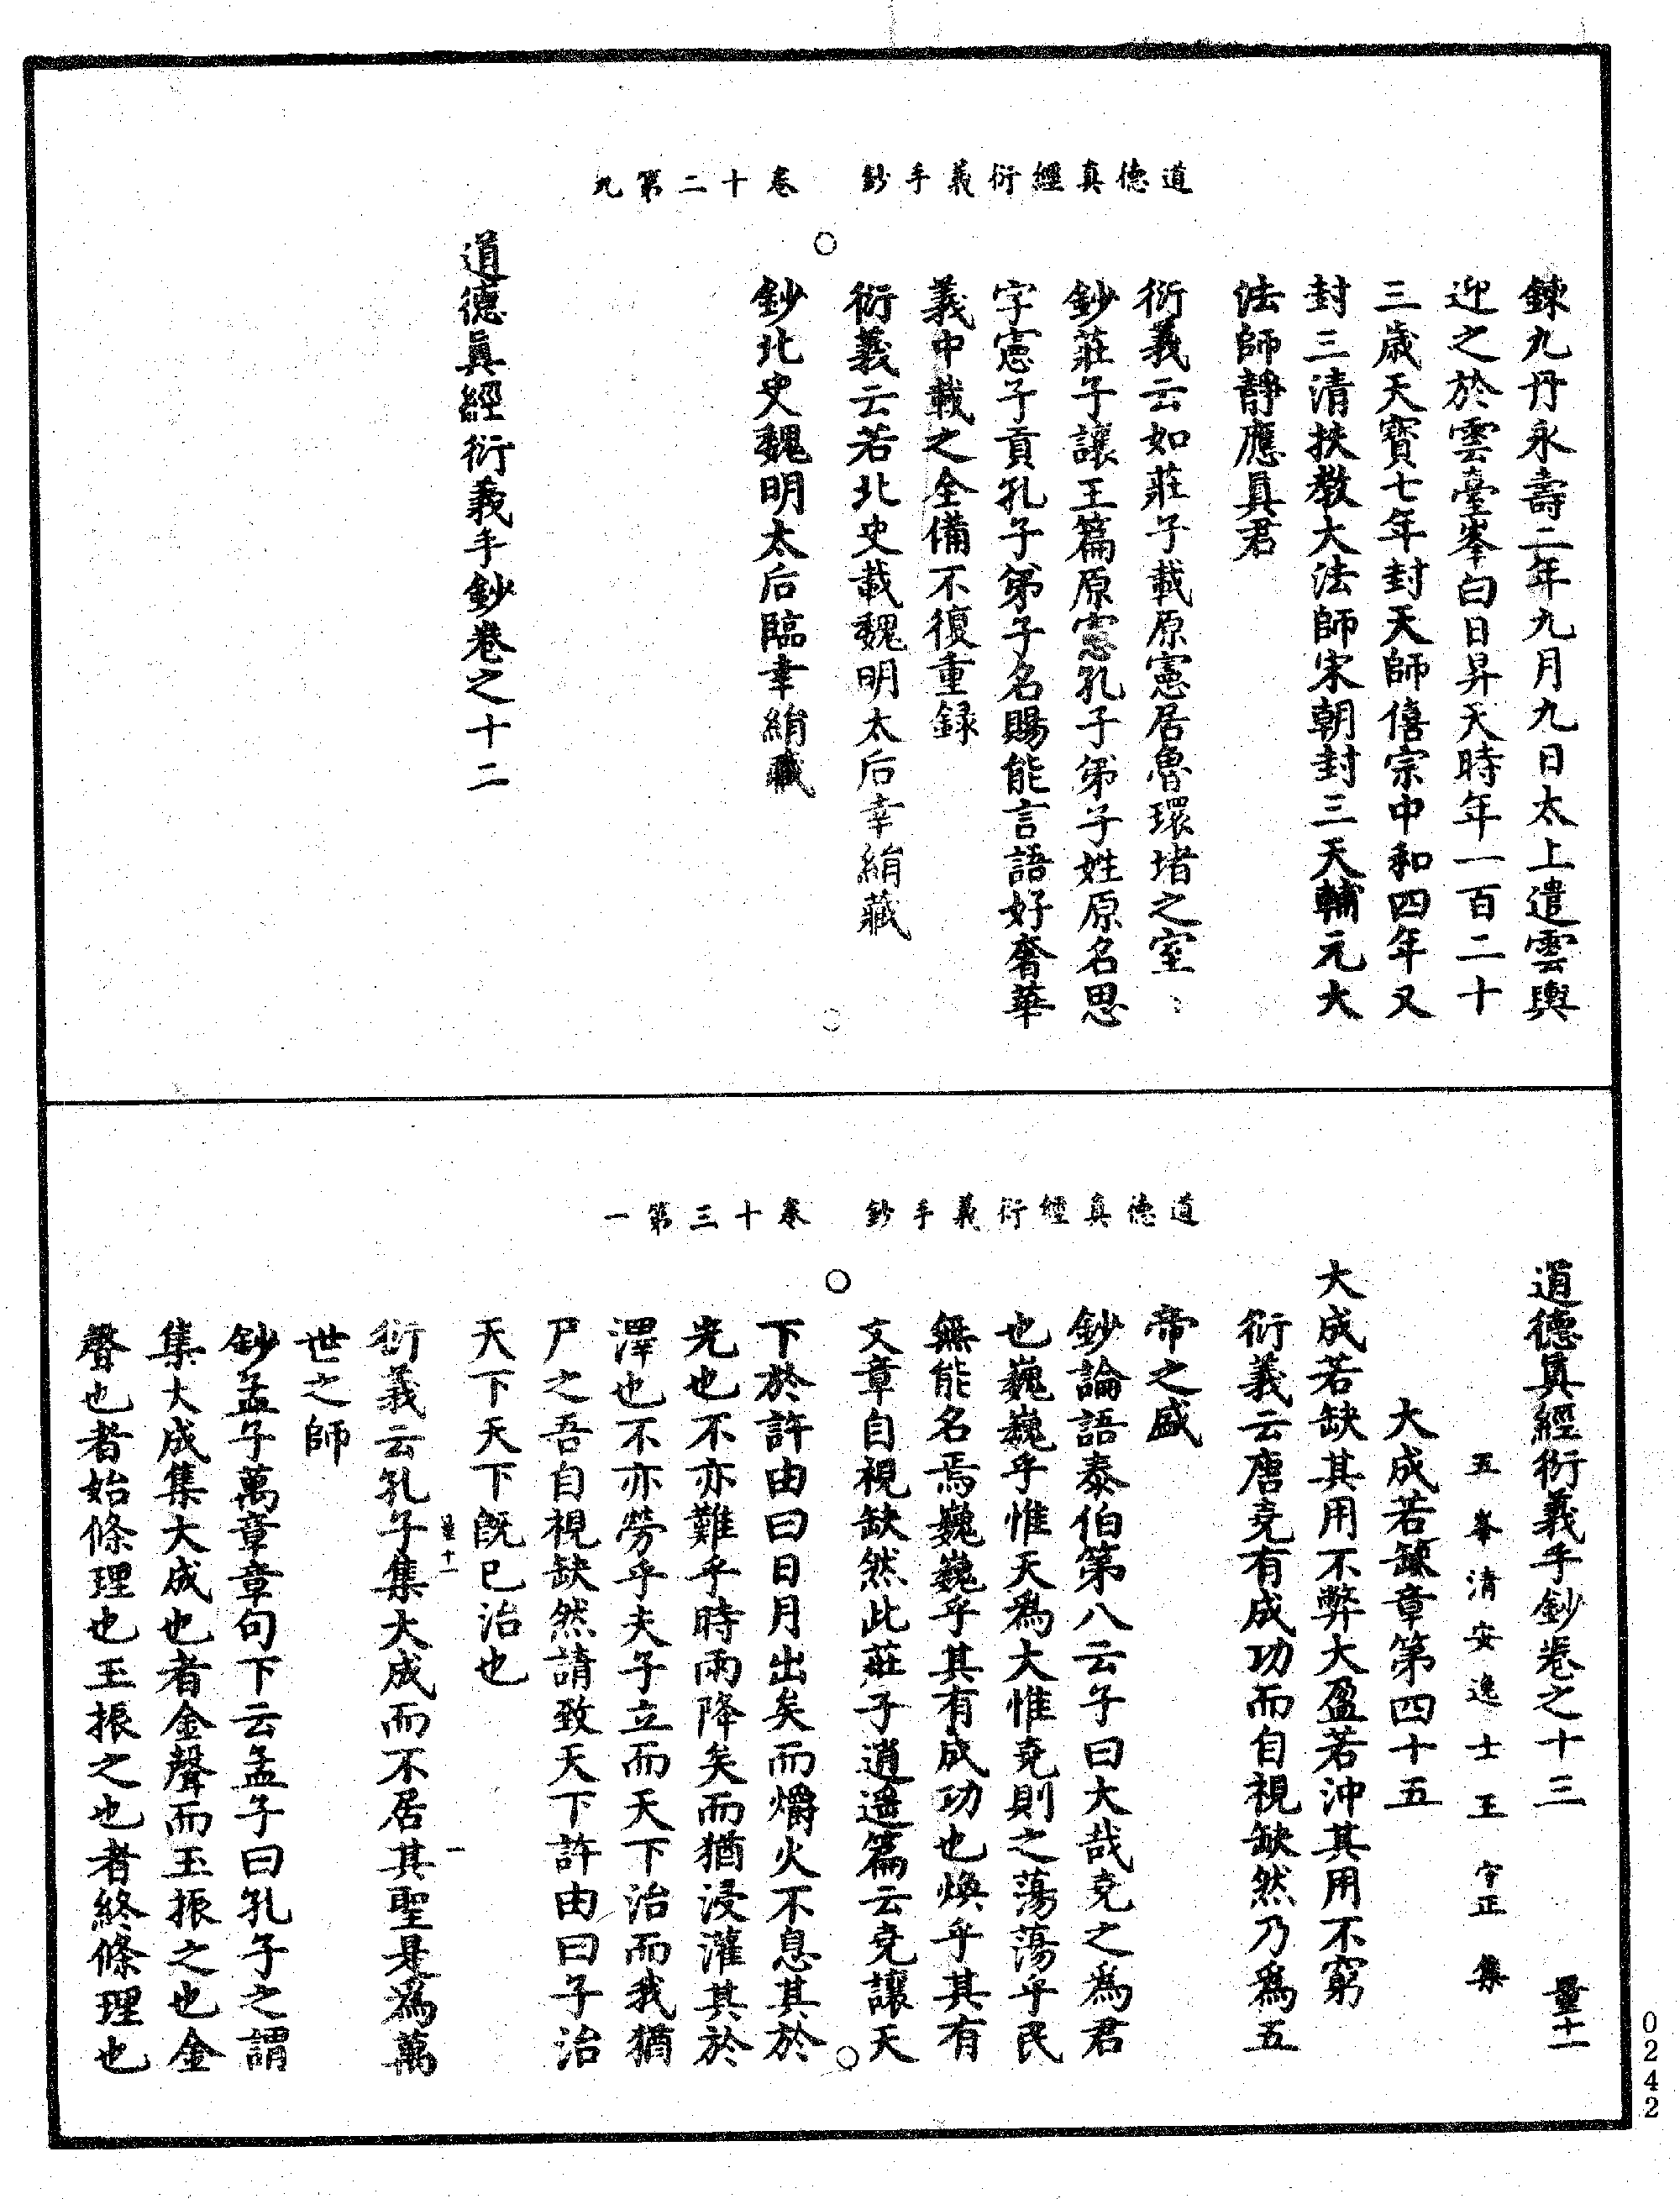 道德真經衍義手鈔　卷十二第九
鍊九丹永壽二年九月九日太上遣雲輿
迎之於雲臺峯白日昇天時年一百二十
三歲天寶七年封天師僖宗中和四年又
封三清扶教大法師宋朝封三天輔元大
法師靜應真君
衍義云如莊子載原憲居魯環堵之室
鈔莊子讓王篇原憲孔子弟子姓原名思
字憲子貢孔子弟子名賜能言語好奢華
義中載之全備不復重録
衍義云若北史載魏明太后幸絹藏
鈔北史魏明太后臨幸絹藏
道德真經衍義手鈔卷之十二
道德真經衍義手鈔　卷十三第一
道德真經衍義手鈔卷之十三　量十一
五峯清安逸士王守正集
大成若缺章第四十五
大成若缺其用不弊大盈若沖其用不窮
衍義云唐堯有成功而自視缺然乃為五
帝之盛
鈔論語泰伯第八云子曰大哉堯之為君
也巍巍乎惟天為大惟堯則之蕩蕩乎民
無能名焉巍巍乎其有成功也煥乎其有
文章自視缺然此莊子逍遙篇云堯讓天
下於許由曰日月出矣而爝火不息其於
光也不亦難乎時雨降矣而猶浸灌其於
澤也不亦勞乎夫子立而天下治而我猶
尸之吾自視缺然請致天下許由曰子治
天下天下既已治也
量十一　一
衍義云孔子集大成而不居其聖是為萬
世之師
鈔孟子萬章章句下云孟子曰孔子之謂
集大成集大成也者金聲而玉振之也金
聲也者始條理也玉振之也者終條理也
0242